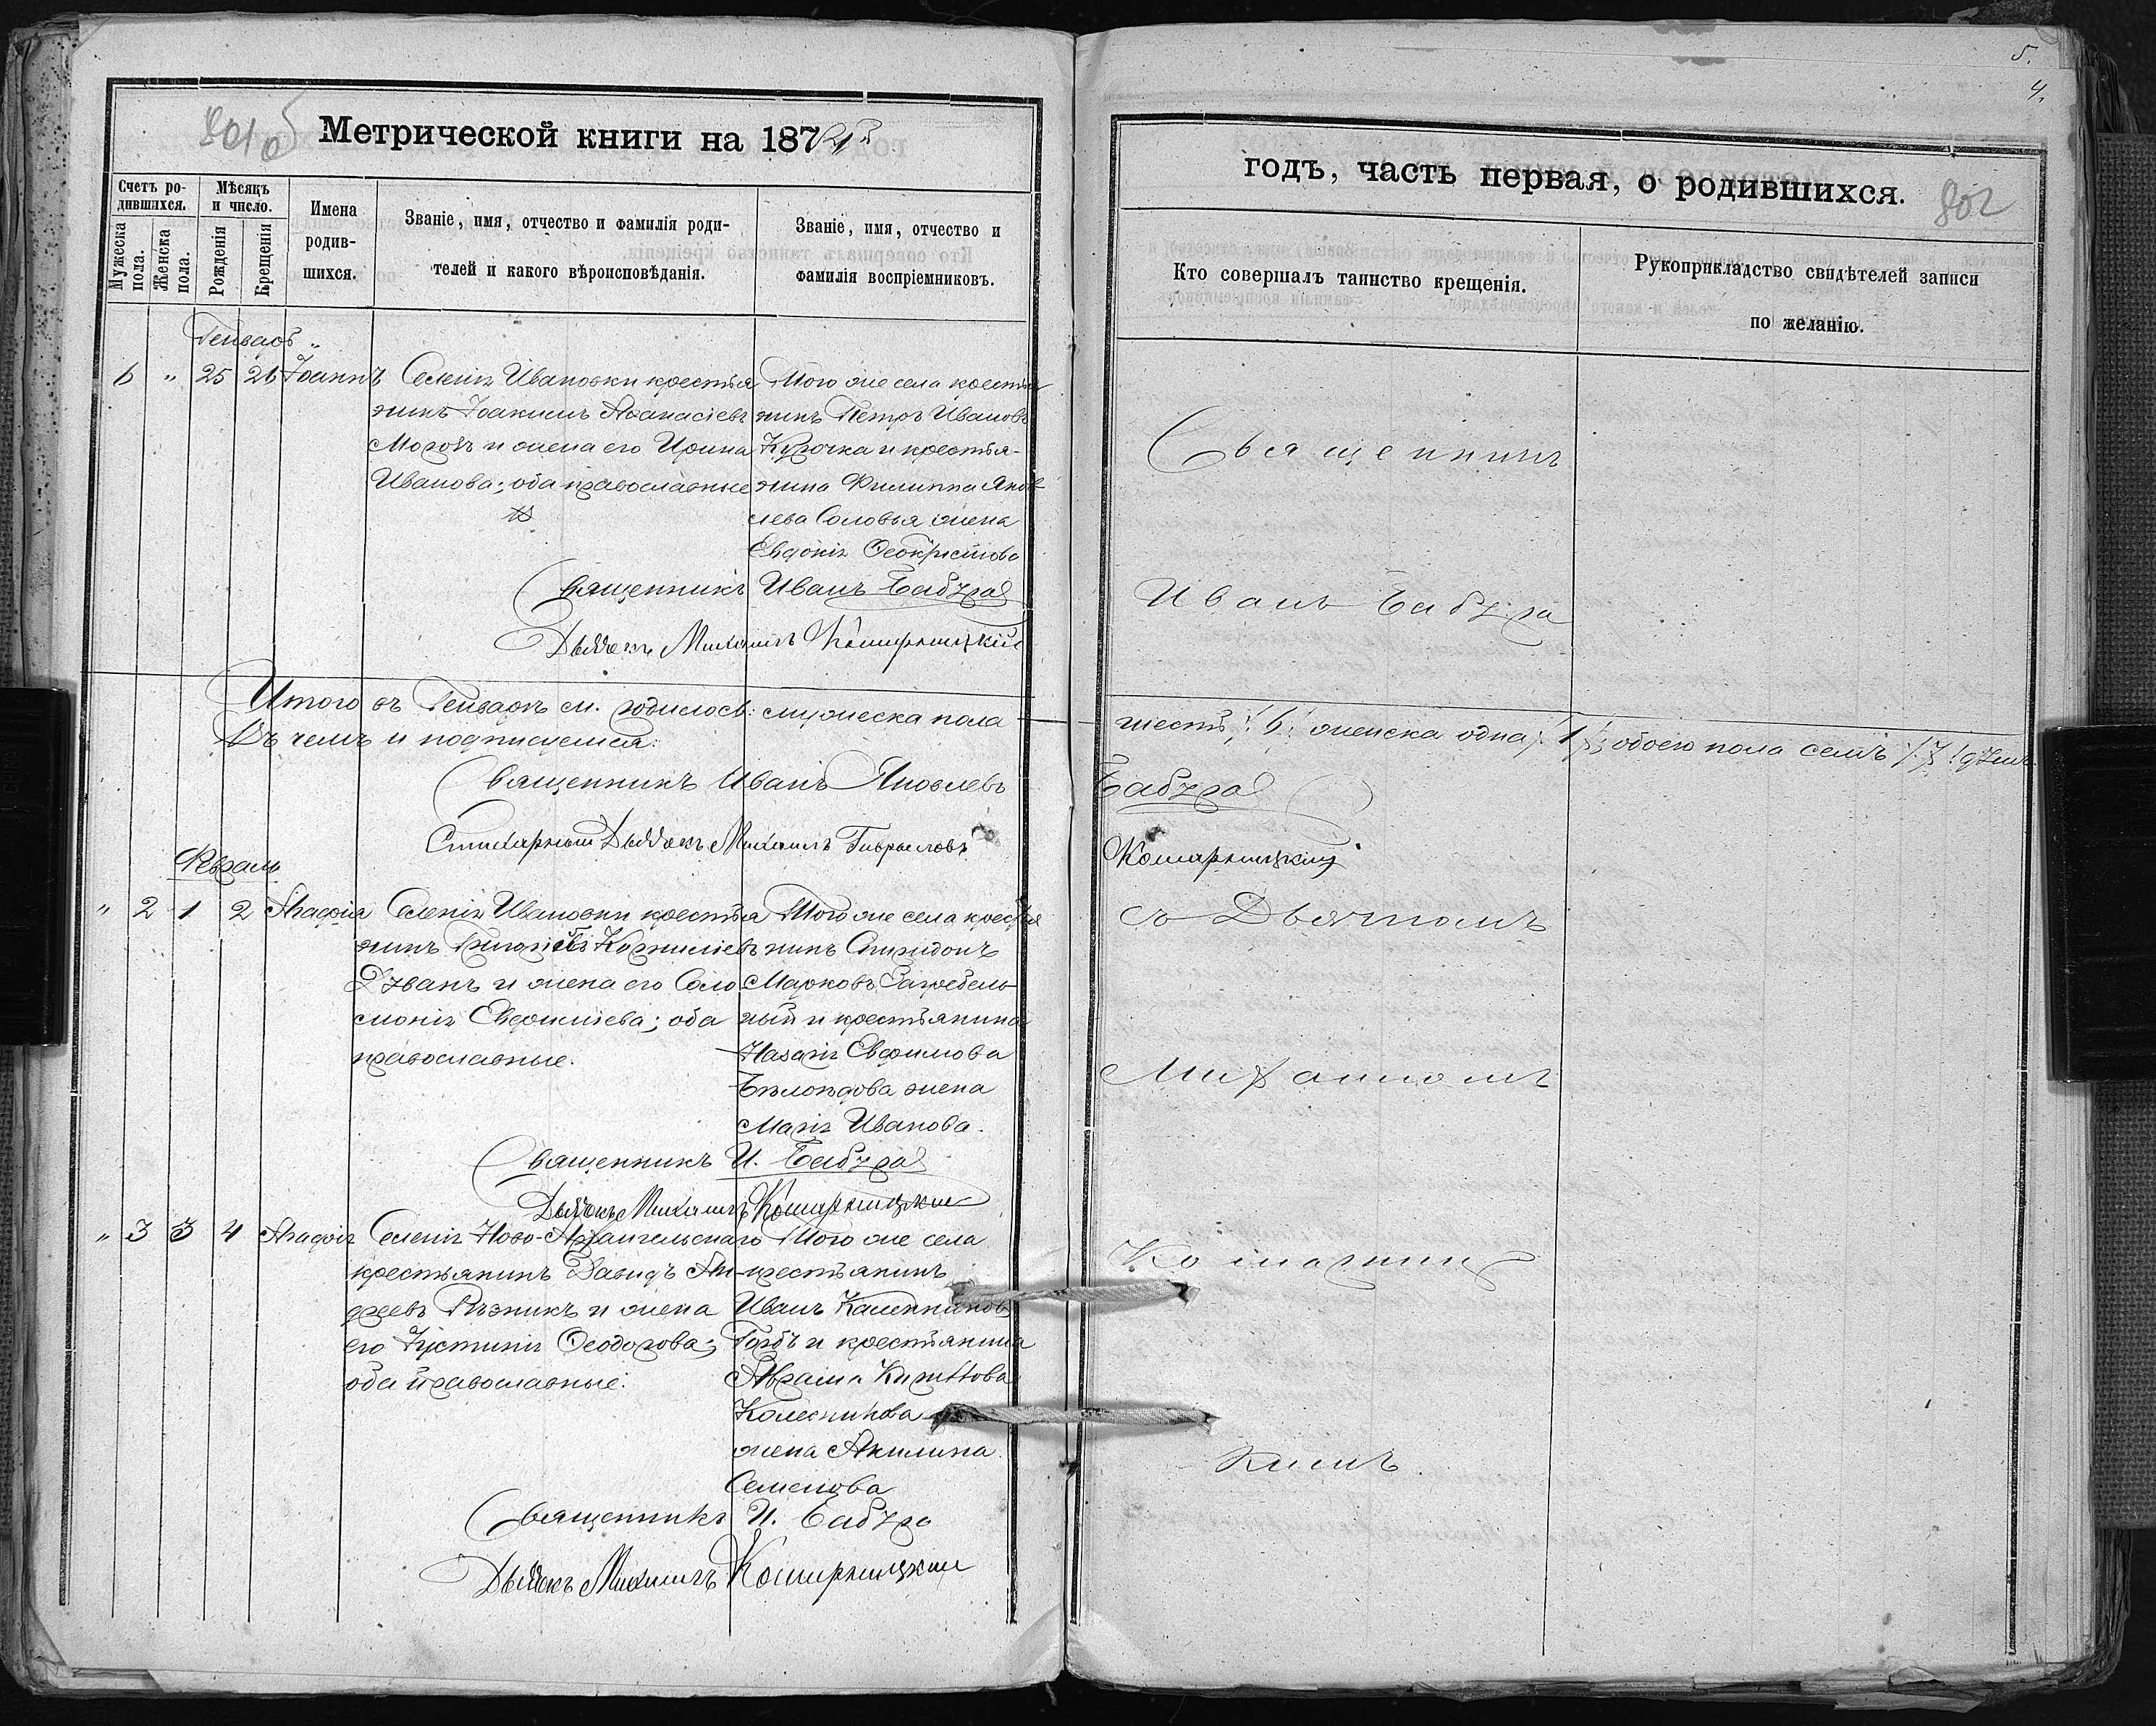 801 об
Метрической книги на 187
Счетъ ро-
дившихся.
Мѣсяцъ
и число.
Мужеска
пола.
Женска
пола.
Рожденія
Крещенія
Имена
родив-
шихся.
Званіе, имя, отчество и фамилія роди-
телей и какого вѣроисповѣданія.
Званіе, имя, отчество и
фамилія воспріемниковъ.
Генварь
6 " 25 26 Іоаннъ
Селенія Ивановки крестья
нинъ Іоакимъ Аѳанасіевъ
и жена его Ирина
Иванова; оба православные
Того же села крестья
нинъ Петръ Ивановъ
Курочка и крестья-
нина Филиппа Яков
лева Соловья жена
Евдокія
Священникъ Иванъ Бабура
Дьячекъ Михаилъ
Итого въ Генварѣ м. родилось: мужеска пола
Въ чемъ и подписуемся:
Священникъ Иванъ Яковлевъ
Стихарный Дьячекъ Михаилъ Гавриловъ
Февраль
" 2 1 2 Агафія
Селенія Ивановки крестья
нинъ Григорій Корниліевъ
и жена его Соло
монія Евфиміева; оба
православные.
Того же села крестья
нинъ Спиридонъ
Марковъ Загребель
ный и крестьянина
Назарія Евфимова
Бѣлоѣдова жена
Марія Иванова.
Священникъ И. Бабура
Дьячекъ Михаилъ
" 3 3 4 Агафія
Селенія Ново-Архангельскаго
крестьянинъ Давидъ Ан-
дреевъ Рѣзникъ и жена
его Іустинія Ѳеодорова;
оба православные.
Того же села
крестьянинъ
Иванъ Калинниковъ
Горбъ и крестьянина
Авраама
Колесникова
жена Акилина
Семенова
Священникъ И. Бабура
Дьячекъ Михаилъ
5.
4.
годъ, часть первая, о родившихся.
802
Кто совершалъ таинство крещенія.
Рукоприкладство свидѣтелей записи
по желанію.
Священникъ
Иванъ Бабура
шесть /:6:/ женска одна /:1:/; обоего пола семь /:7:/ душъ.
Бабура
съ Дьячкомъ
Михаиломъ